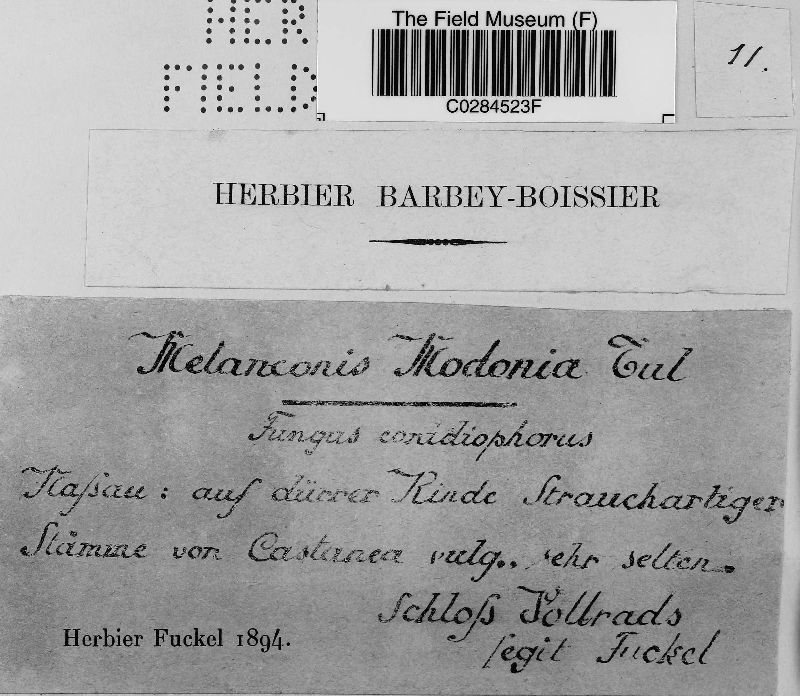 HER
FIELD
The Field Museum (F)
C0284523F
11.
HERBIER BARBEY-BOISSIER
Melanconis Modonia Tul
Fungus conidiophorus
Naßau: auf dürrer Rinde Strauchartiger
Stämme von Castanea vulg., sehr selten.
Schloß Vollrads
Herbier Fuckel 1894.
legit Fuckel